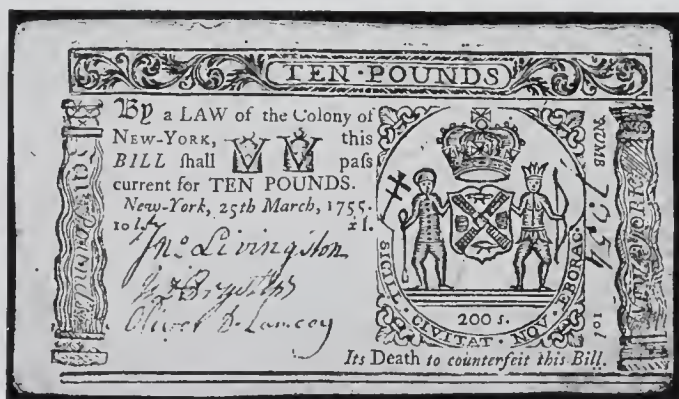 TEN·POUNDS
By a LAW of the Colony of
NEW-YORK, this
BILL ſhall paſs
current for TEN POUNDS.
New-York, 25th March, 1755.
10l. xl.
Jno. Livingston
Oliver D Lancey
NUMB 7054
10l
SIGILL·CIVITAT·NOV·EBORAC·
200 s.
Its Death to counterfeit this Bill.